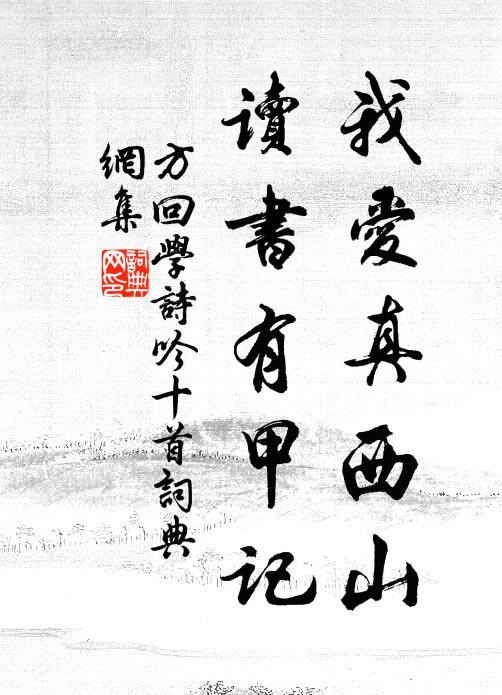 我愛真西山
讀書有甲記
方回學詩吟十首詞典
網集
詞典
网印